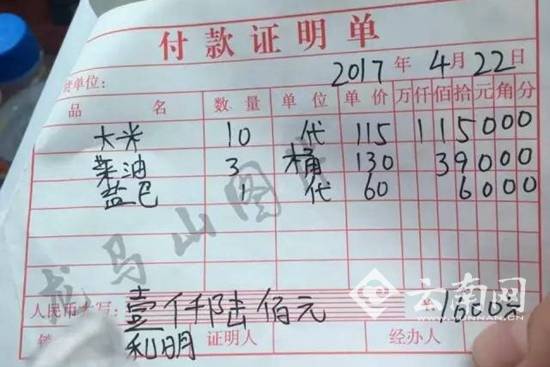 付款证明单
2017年4月22日
货单位:
品名 数量 单位 单价 万仟佰拾元角分
大米 10 代 115 115000
菜油 3 桶 130 39000
盐巴 1 代 60 6000
龙马山图片
云南网
YUNNAN.CN
人民币大写: 壹仟陆佰元 ¥ 1600元
利明 证明人 经办人